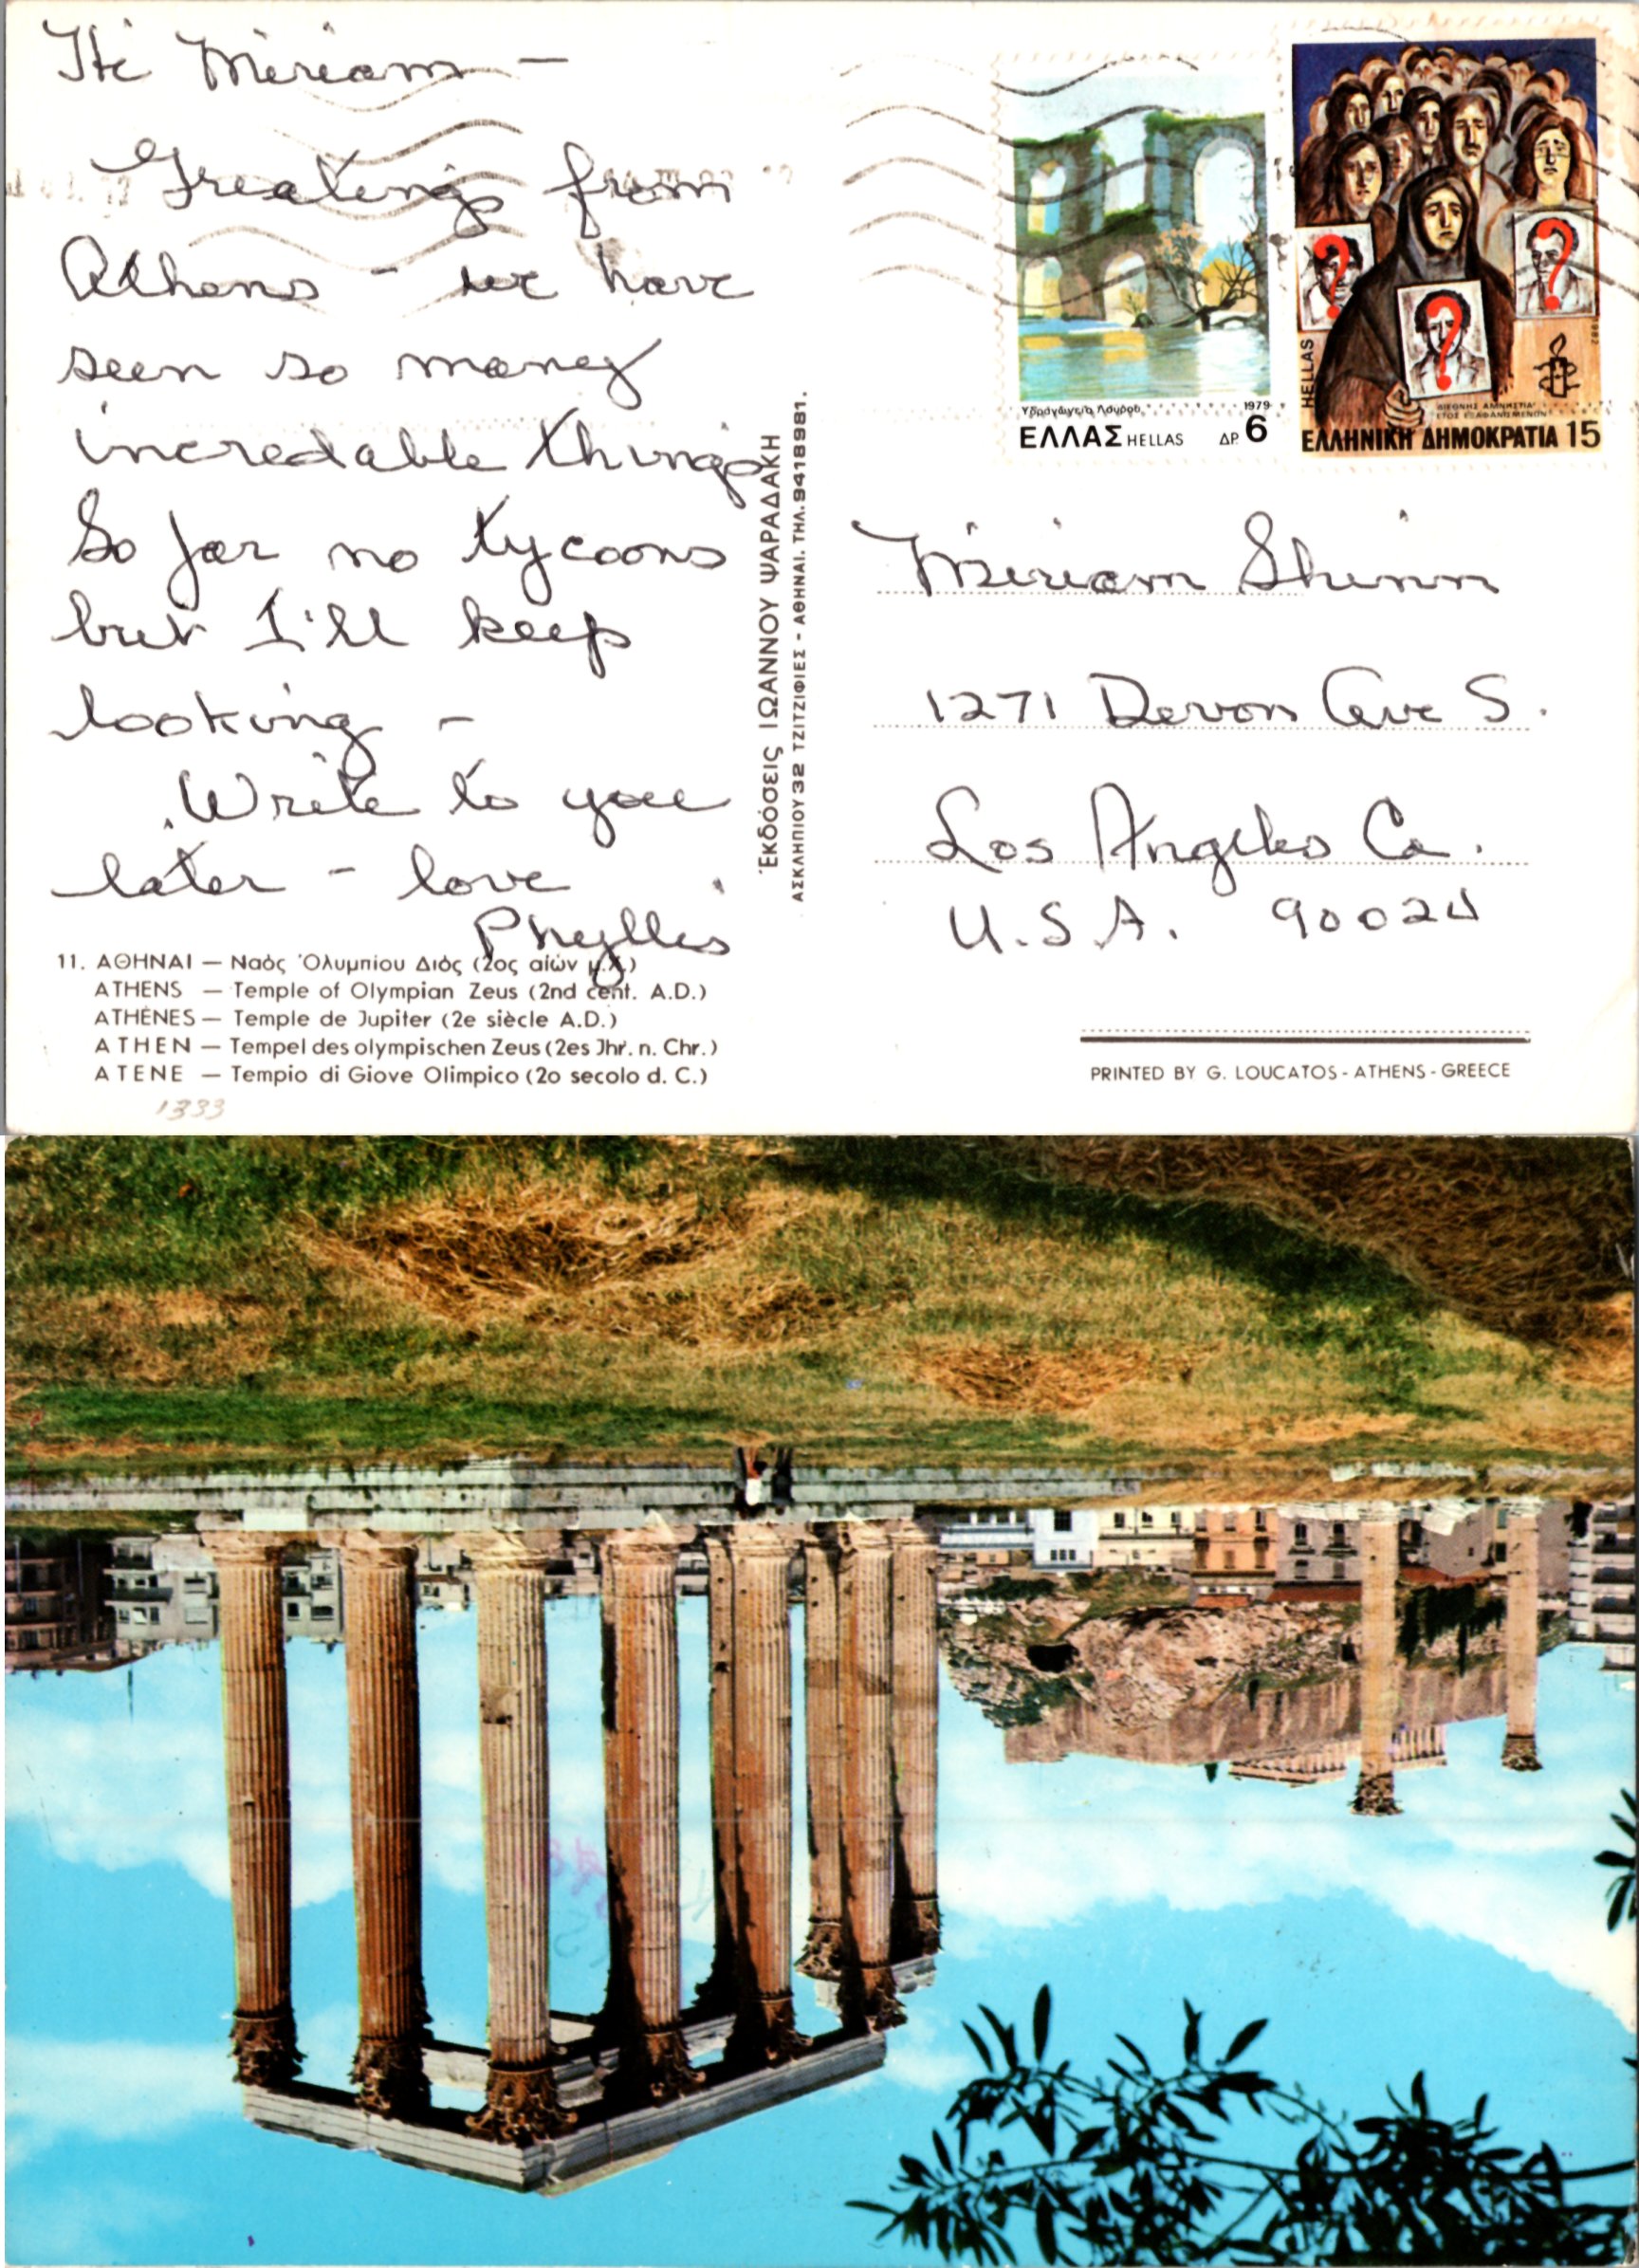 Hi Miriam —
Greatings from
Athens - we have
seen so many
incredable things
So far no tycoons
but I'll keep
looking -
Write to you
later - love
Phyllis
11. ΑΘΗΝΑΙ — Ναὸς Ὀλυμπίου Διὸς (2ος αἰών μ.Χ.)
ATHENS — Temple of Olympian Zeus (2nd cent. A.D.)
ATHÈNES — Temple de Jupiter (2e siècle A.D.)
ATHEN — Tempel des olympischen Zeus (2es Jhr. n. Chr.)
ATENE — Tempio di Giove Olimpico (2o secolo d. C.)
1333
Ἐκδόσεις ΙΩΑΝΝΟΥ ΨΑΡΑΔΑΚΗ
ΑΣΚΛΗΠΙΟΥ 32 ΤΖΙΤΖΙΦΙΕΣ - ΑΘΗΝΑΙ. ΤΗΛ. 9418981.
Υδραγωγείο Λούρου
1979
ΕΛΛΑΣ HELLAS ΔΡ. 6
HELLAS
1982
ΔΙΕΘΝΗΣ ΑΜΝΗΣΤΙΑ
ΕΤΟΣ ΕΞΑΦΑΝΙΣΜΕΝΩΝ
ΕΛΛΗΝΙΚΗ ΔΗΜΟΚΡΑΤΙΑ 15
Miriam Shinn
1271 Devon Ave S.
Los Angeles Ca.
U.S.A. 90024
PRINTED BY G. LOUCATOS - ATHENS - GREECE